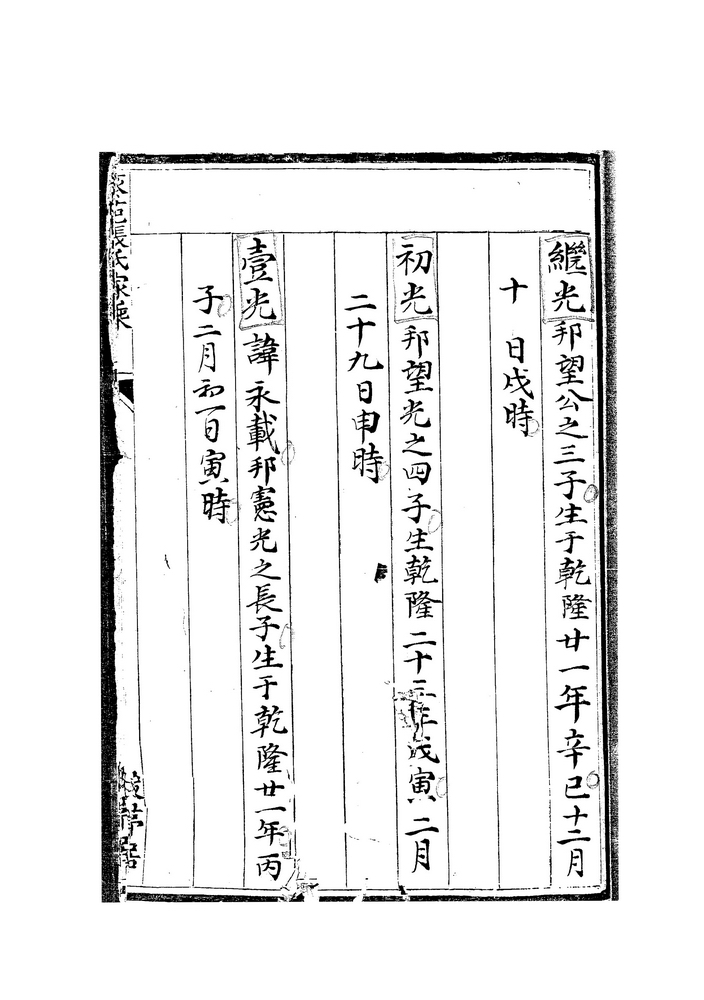 繼光邦望公之三子生于乾隆廿一年辛巳十二月
十 日戌時
初光邦望光之四子生乾隆二十三年戊寅二月
二十九日申時
壹光諱永載邦憲光之長子生于乾隆廿一年丙
子二月初一日寅時
張氏家乘